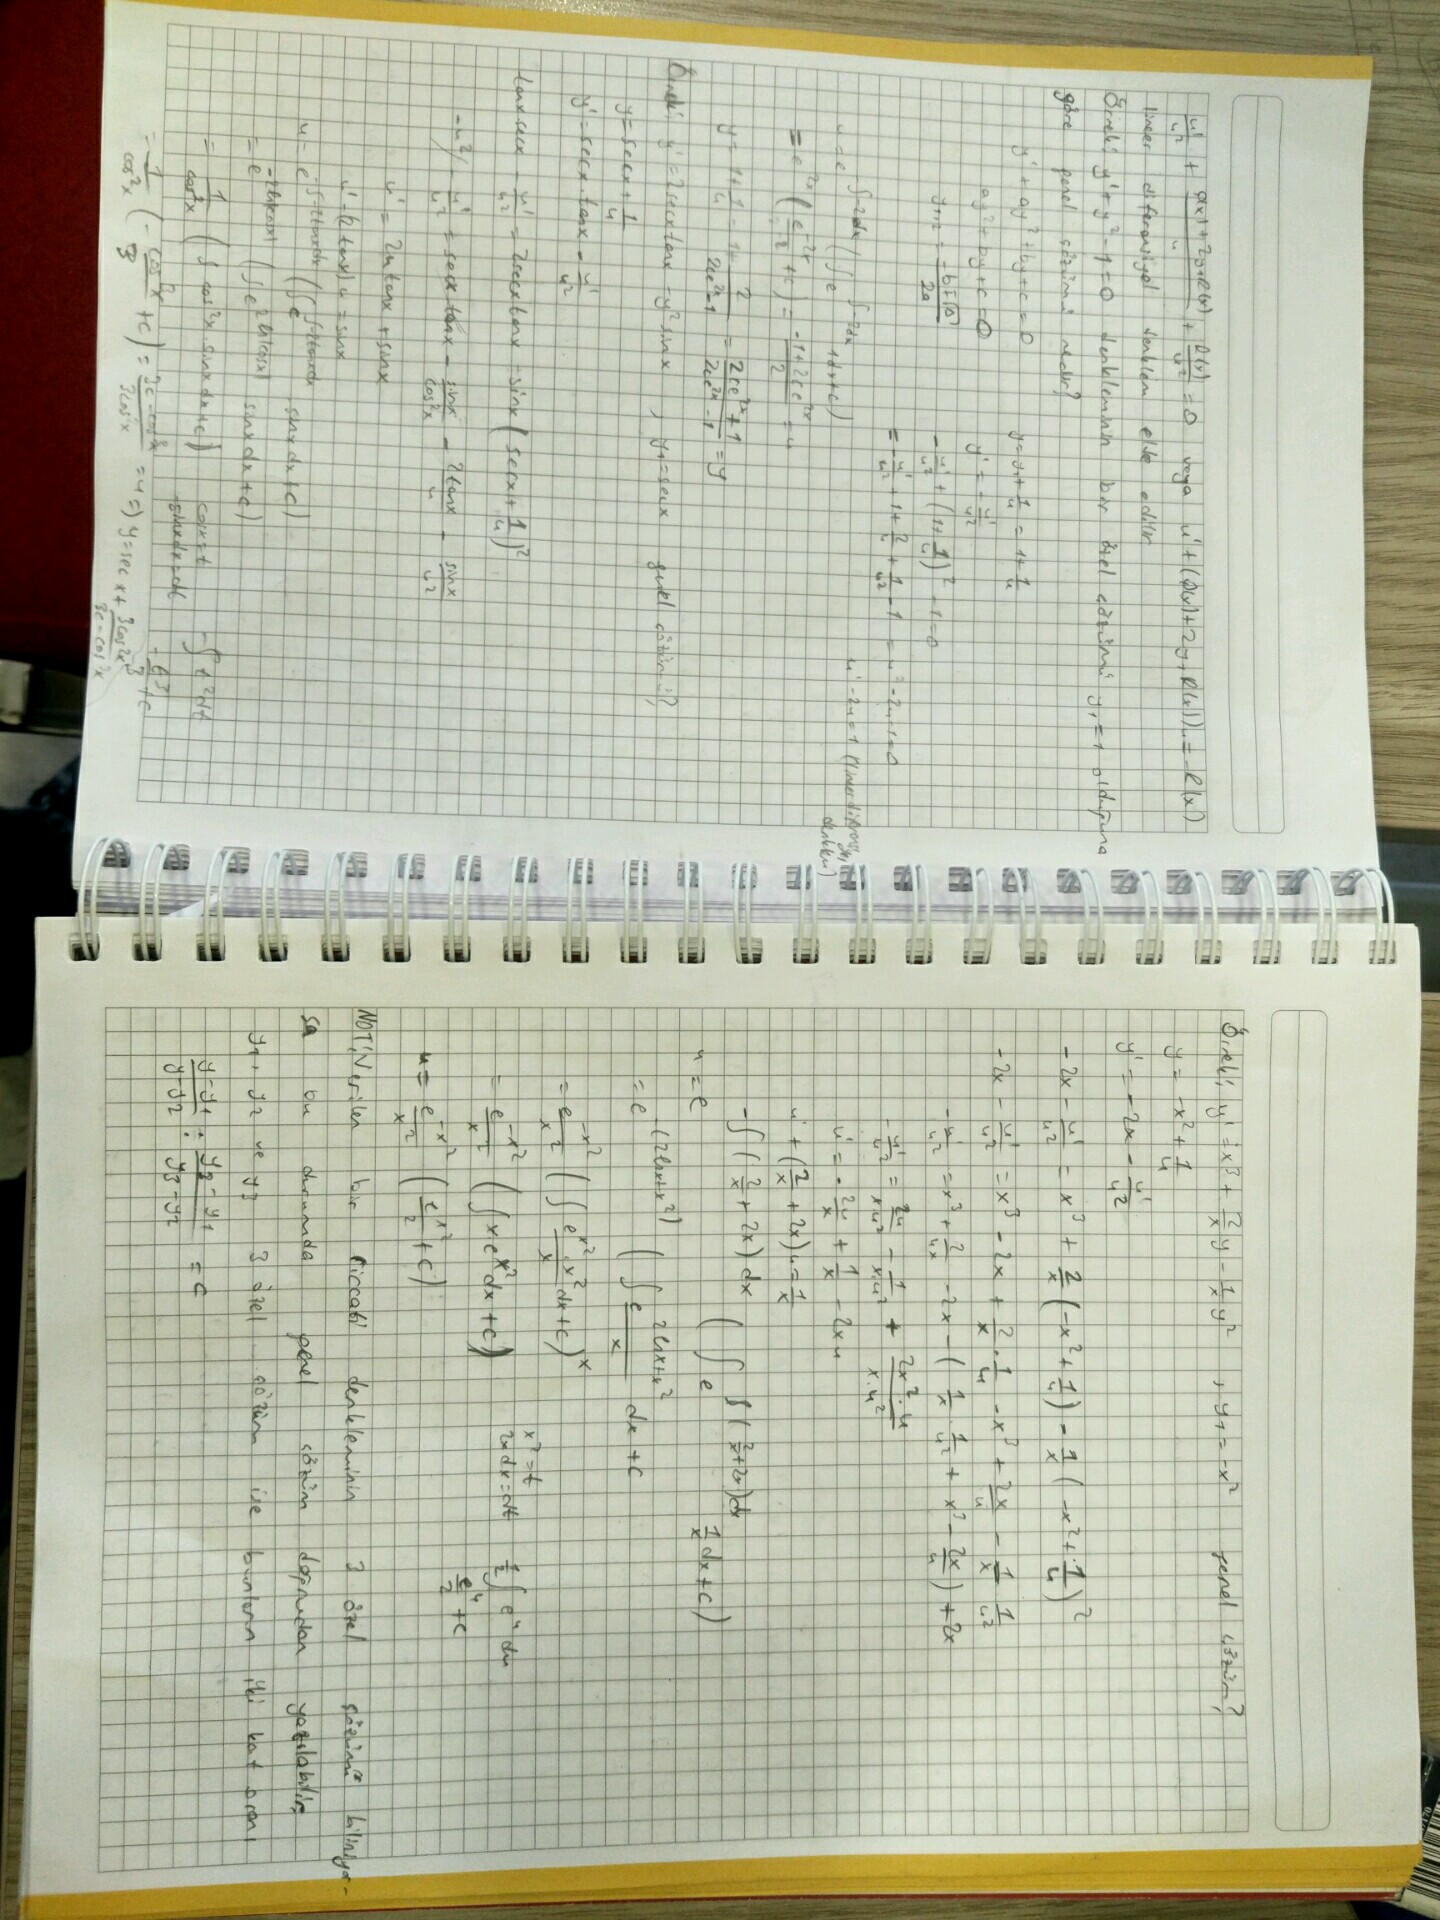 u'/u² + (Q(x)+2y₁R(x))/u + R(x)/u² = 0 veya u' + (Q(x)+2y₁R(x))u = -R(x)
lineer diferensiyel denklem elde edilir
Örnek: y'+y²-1=0 denkleminin bir özel çözümü y₁=1 olduğuna
göre genel çözümü nedir?
y' + ay² + by + c = 0
y = y₁ + 1/u = 1 + 1/u
ay² + by + c = 0
y' = -u'/u²
y₁,₂ = (-b±√Δ)/2a
-u'/u² + (1 + 1/u)² - 1 = 0
= -u'/u² + 1 + 2/u + 1/u² - 1 = u' - 2u - 1 = 0
u' - 2u = 1 (lineer diferensiyel
denklem)
u = e^(-∫-2dx) (∫ e^(∫-2dx) 1dx + c)
= e^(2x) (e^(-2x)/-2 + c) = (-1+2ce^(2x))/2 = u
y = 1 + 1/u = 1 + 2/(2ce^(2x)-1) = (2ce^(2x)+1)/(2ce^(2x)-1) = y
Örnek: y' = 2secxtanx - y²sinx , y₁ = secx genel çözümü?
y = secx + 1/u
y' = secx.tanx - u'/u²
tanxsecx - u'/u² = 2secxtanx - sinx (secx + 1/u)²
-u²/ -u'/u² = secx tanx - sinx/cos²x - 2tanx/u - sinx/u²
u' = 2u tanx + sinx
u' - (2tanx)u = sinx
u = e^(-∫-2tanxdx) (∫ e^(∫-2tanxdx) sinxdx + c)
= e^(-2ln|cosx|) (∫ e^(2ln|cosx|) sinxdx + c)
= 1/cos²x (∫ cos²x.sinxdx + c) cosx = t -∫t²dt
-sinxdx = dt -t³/3 + c
= 1/cos²x (-cos³x/3 + c) = (3c-cos³x)/3cos²x = u => y = secx + 3cos²x/(3c-cos³x)
Örnek: y' = x³ + 2/x y - 1/x y² , y₁ = -x² genel çözüm?
y = -x² + 1/u
y' = -2x - u'/u²
-2x - u'/u² = x³ + 2/x (-x² + 1/u) - 1/x (-x² + 1/u)²
-2x - u'/u² = x³ - 2x + 2/x . 1/u - x³ + 2x/u - 1/x 1/u²
-u'/u² = x³ + 2/ux - 2x - (1/x . 1/u² + x³ - 2x/u) + 2x
-u'/u² = 2u/x.u² - 1/x.u² + 2x².u/x.u²
u' = -2u/x + 1/x - 2xu
u' + (2/x + 2x)u = 1/x
u = e^(-∫(2/x + 2x)dx) (∫ e^(∫(2/x+2x)dx) 1/x dx + c)
= e^(-(2lnx+x²)) (∫ e^(2lnx+x²)/x dx + c
= e^(-x²)/x² (∫ e^(x²).x²/x dx + c)
x² = t
= e^(-x²)/x² (∫ x e^(x²) dx + c) 2xdx = dt 1/2 ∫ e^u du
e^u/2 + c
u = e^(-x²)/x² (e^(x²)/2 + c)
NOT: Verilen bir Riccati denkleminin 3 özel çözümü biliniyor-
sa bu durumda genel çözüm doğrudan yazılabilir.
y₁, y₂ ve y₃ 3 özel çözüm ise bunların iki kat oranı
(y-y₁)/(y-y₂) : (y₃-y₁)/(y₃-y₂) = c